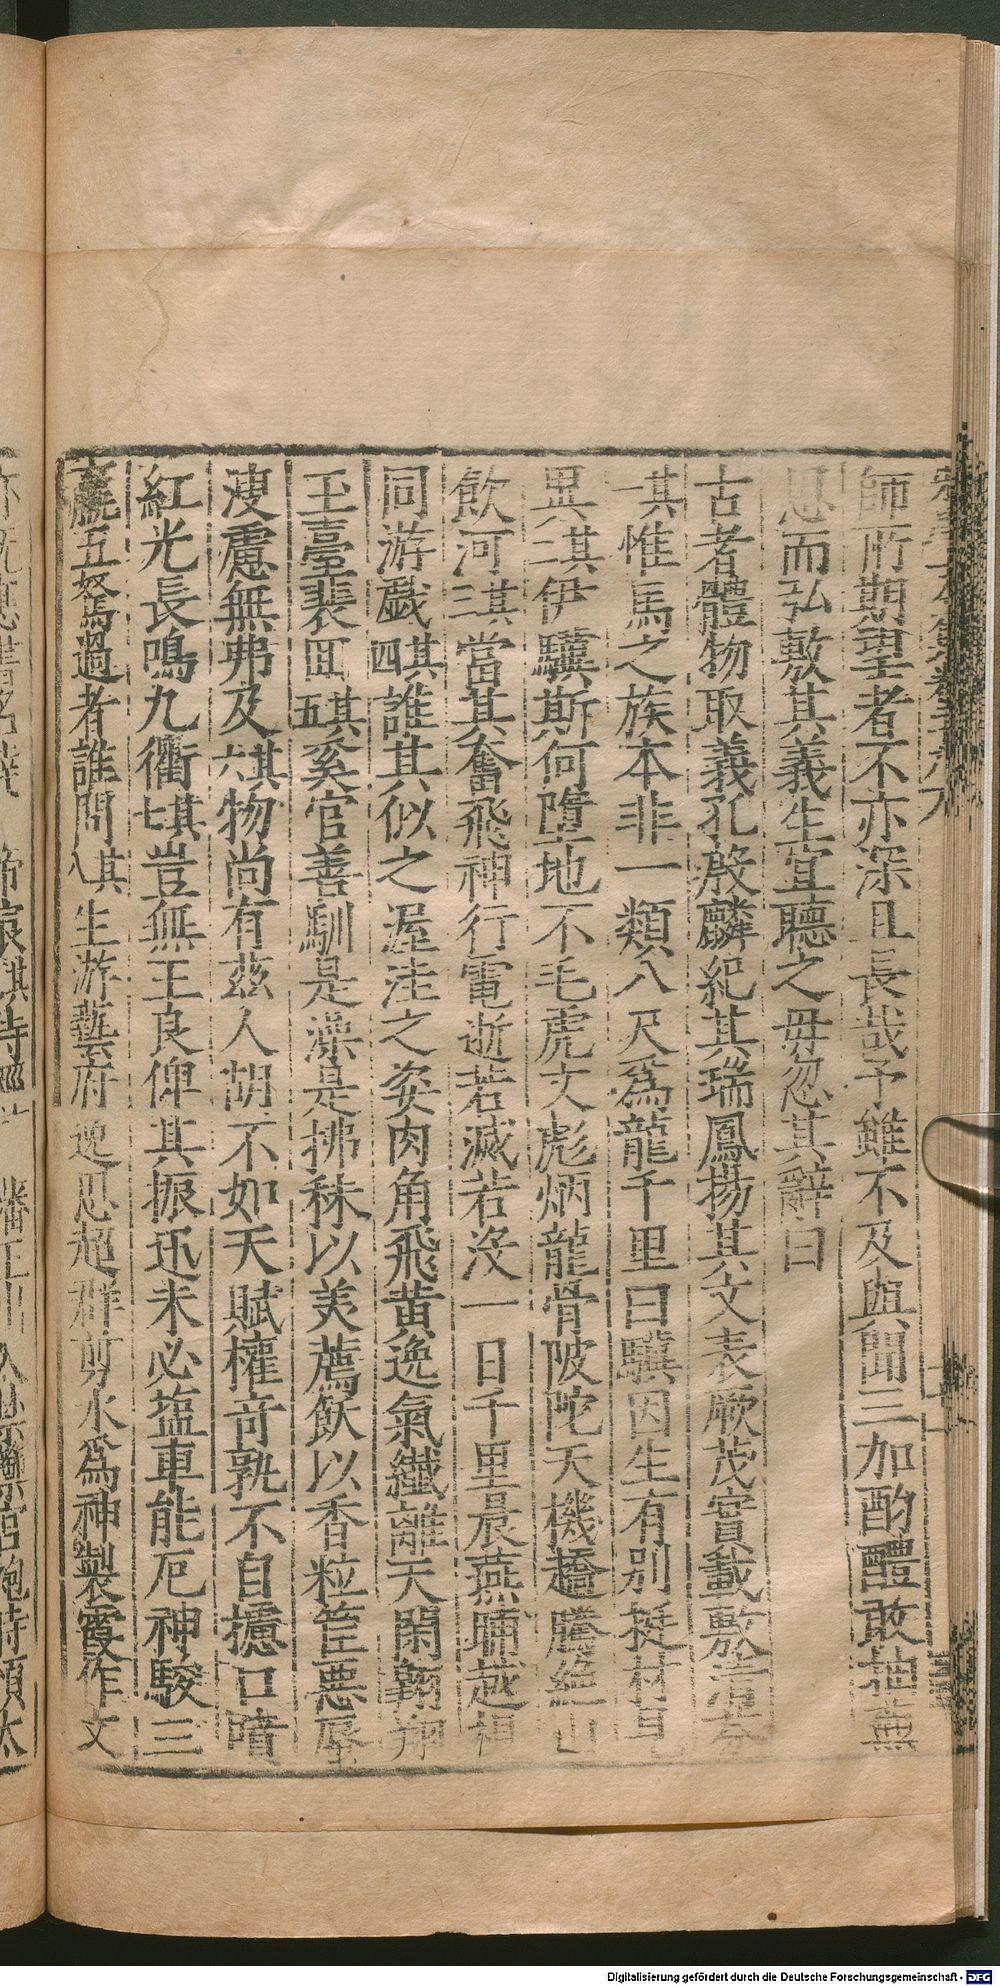 師所期望者不亦深且長哉予雖不及與聞三加酌醴敢抽蕪
思而弘敷其義生宜聽之毋忽其辭曰
古者體物取義孔殷麟紀其瑞鳳揚其文表厥茂實載敷
其一惟馬之族本非一類八尺爲龍千里曰驥因生有別挺材
異其二伊驥斯何墮地不毛虎文彪炳龍骨陂陀天機趫騰絕山
飲河其三當其奮飛神行電逝若滅若没一日千里晨燕晡越
同游戲其四誰其似之渥洼之姿肉角飛黄逸氣纖離天閑翱翔
玉臺裴囬其五奚官善馴是澡是拂秣以羙薦飫以香粒筐惡
溲慮無弗及其六物尚有兹人胡不如天賦權竒孰不自攄口噴
紅光長鳴九衢其七豈無王良俾其振迅未必塩車能厄神駿三
羸五駑過者誰問其八生游藝府逸思超群剪水爲神製霞作文
Digitalisierung gefördert durch die Deutsche Forschungsgemeinschaft - DFG